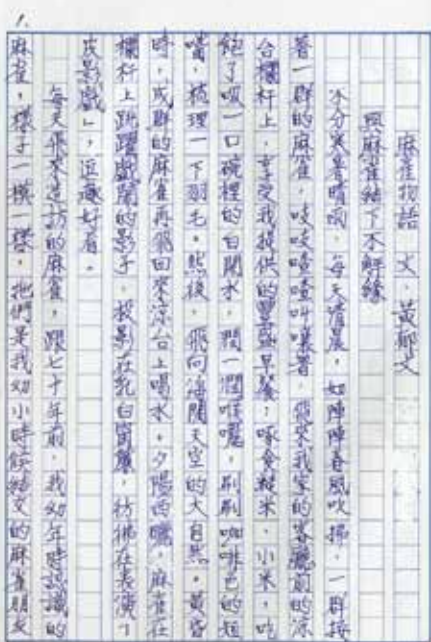 1.
麻雀物語 文，黃郁文
與麻雀結下不解緣
不分寒暑晴雨，每天清晨，如陣陣春風吹拂，一群接
著一群的麻雀，吱吱喳喳叫嚷著，飛來我家的客廳前的涼
台欄杆上，享受我提供的豐盛早餐；啄食糙米、小米，吃
飽了吸一口碗裡的白開水，潤一潤喉嚨，刷刷咖啡色的短
嘴，梳理一下羽毛。然後，飛向海闊天空的大自然。黃昏
時，成群的麻雀再飛回來涼台上喝水。夕陽西曬，麻雀在
欄杆上跳躍戲鬧的影子，投影在乳白窗簾，彷彿在表演「
皮影戲」，逗趣好看。
每天飛來造訪的麻雀，跟七十年前，我幼年時認識的
麻雀，樣子一模一樣，牠們是我幼小時餵結交的麻雀朋友